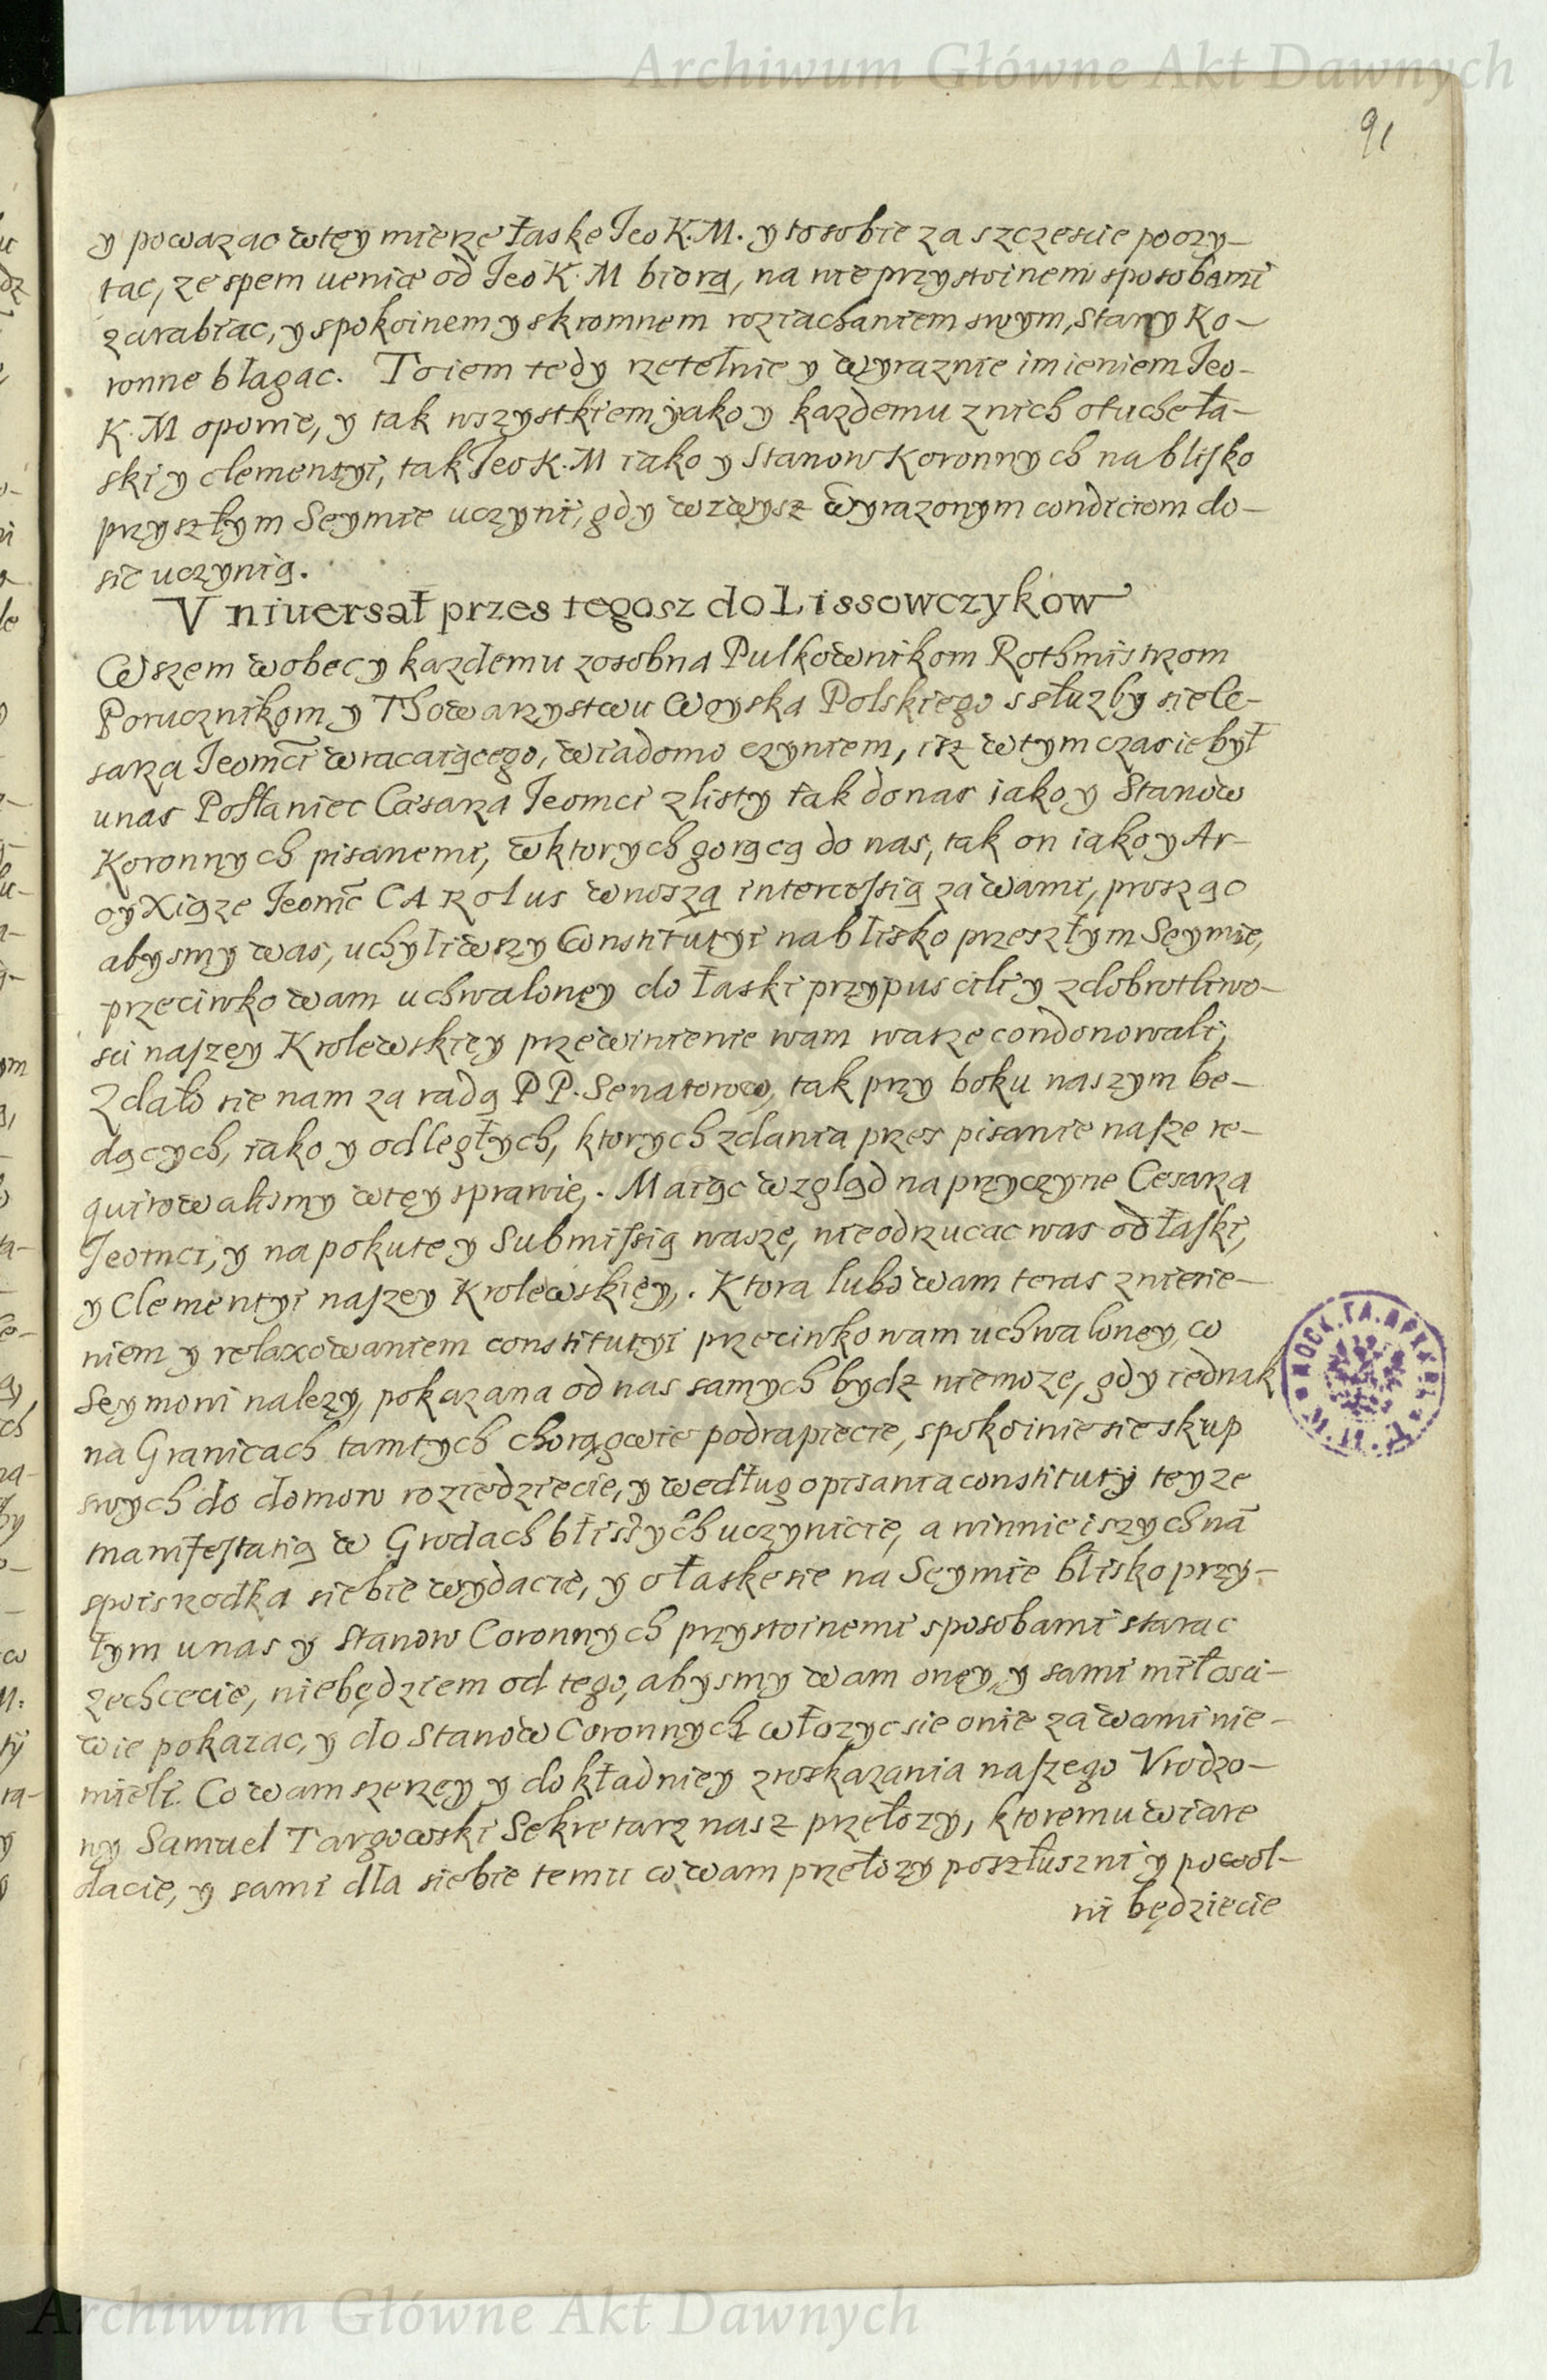 Archiwum Główne Akt Dawnych
91
y powazac wtey mierze łaske Jeo K.M. y to sobie za szczescie poczy-
tac, ze spem veniæ od Jeo K.M biorą, na nie przystoinemi sposobami
zarabiac, y spokoinem y skromnem roziachaniem swym, Stany Ko-
ronne błagac. Toiem tedy rzetelnie y wyraznie imieniem Jeo-
K.M opowie, y tak wszystkiem yako y kazdemu znich otuche ła-
ski y clementyi, tak Jeo K.M iako y Stanow Koronnych na blisko
przyszłym Seymie uczyni, gdy wzwysz wyrazonym condiciom do-
sic uczynią.
Vniuersał przes tegosz do Lissowczykow
Wszem wobec y kazdemu zosobna Pulkownikom Rothmistrzom
Porucznikom y Thowarzystwu Woyska Polskiego s słuzby sie Ce-
sarza Jeomci wracaiącego, wiadomo czyniem, isz wtym czasie był
unas Posłaniec Cæsarza Jeomci zlisty tak donas iako y Stanow
Koronnych pisanemi, wktorych gorącą do nas, tak on iako y Ar-
cy Xiąze Jeomc CARolus wnoszą intercessią za wami, prosząc
abysmy was, uchyliwszy Constitutyi na blisko przeszłym Seymie,
przeciwko wam uchwaloney do łaski przypuscili y zdobrotliwo-
sci naszey Krolewskiey przewinienie wam wasze condonowali,
Zdało sie nam za radą PP. Senatorow, tak przy boku naszym be-
dących, iako y odległych, ktorych zdania przes pisanie nasze re-
quirowalismy wtey sprawie,. Maiąc wzgląd na przyczyne Cesarza
Jeomci, y na pokute y Submissią wasze, nieodrzucac was od łaski,
y Clementyi naszey Krolewskiey,. Ktora lubo wam teras zniesie-
niem y relaxowaniem constitutyi przeciwko wam uchwaloney, co
Seymowi nalezy, pokazana od nas samych bydz niemoze, gdy iednak
na Granicach tamtych chorągwie podrapiecie, spokoinie sie skup
swych do domow roziedziecie, y według opisania constituty teyze
manifestatią w Grodach bliskych uczynicie, a winnieiszych na
spoiszrodka siebie wydacie, y o łaske sie na Seymie blisko przy-
łym unas y Stanow Coronnych przystoinemi sposobami starac
zechcecie, niebędziem od tego, abysmy wam oney, y sami miłosci-
wie pokazac, y do Stanow Coronnych włozyc sie onie za wami nie-
mieli. Co wam szerzey y dokładniey zroskazania naszego Vrodzo-
ny Samuel Targowski Sekretarz nasz przełozy, ktoremu wiare
dacie, y sami dla siebie temu co wam przełozy poszłuszni y powol-
ni będziecie
Archiwum Główne Akt Dawnych